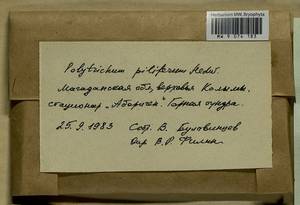 Herbarium MW, Bryophyta
MW 9074183
Polytrichum piliferum Hedw.
Магаданская обл., верховья Колымы,
стационар "Аборигей". Горная тундра.
25.9.1983 Соб. В. Буловинцов
Опр. В.Р. Филин